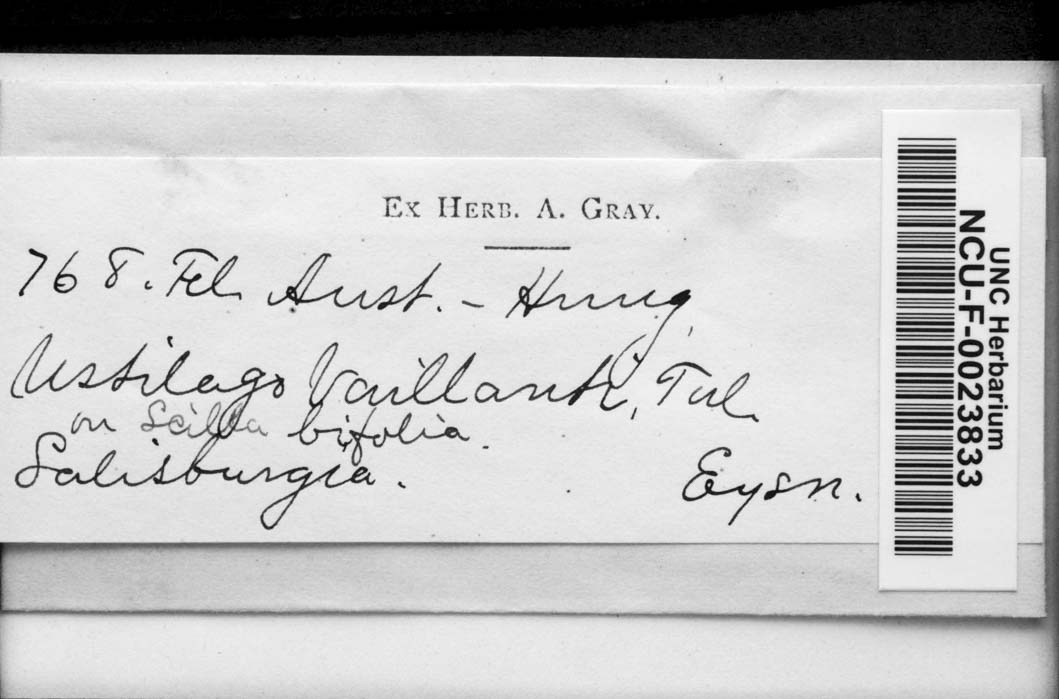 Ex Herb. A. Gray.
768. Fl. Aust. - Hung.
Ustilago Vaillantii, Tul.
on Scilla bifolia.
Salisburgia. Eysn.
UNC Herbarium
NCU-F-0023833